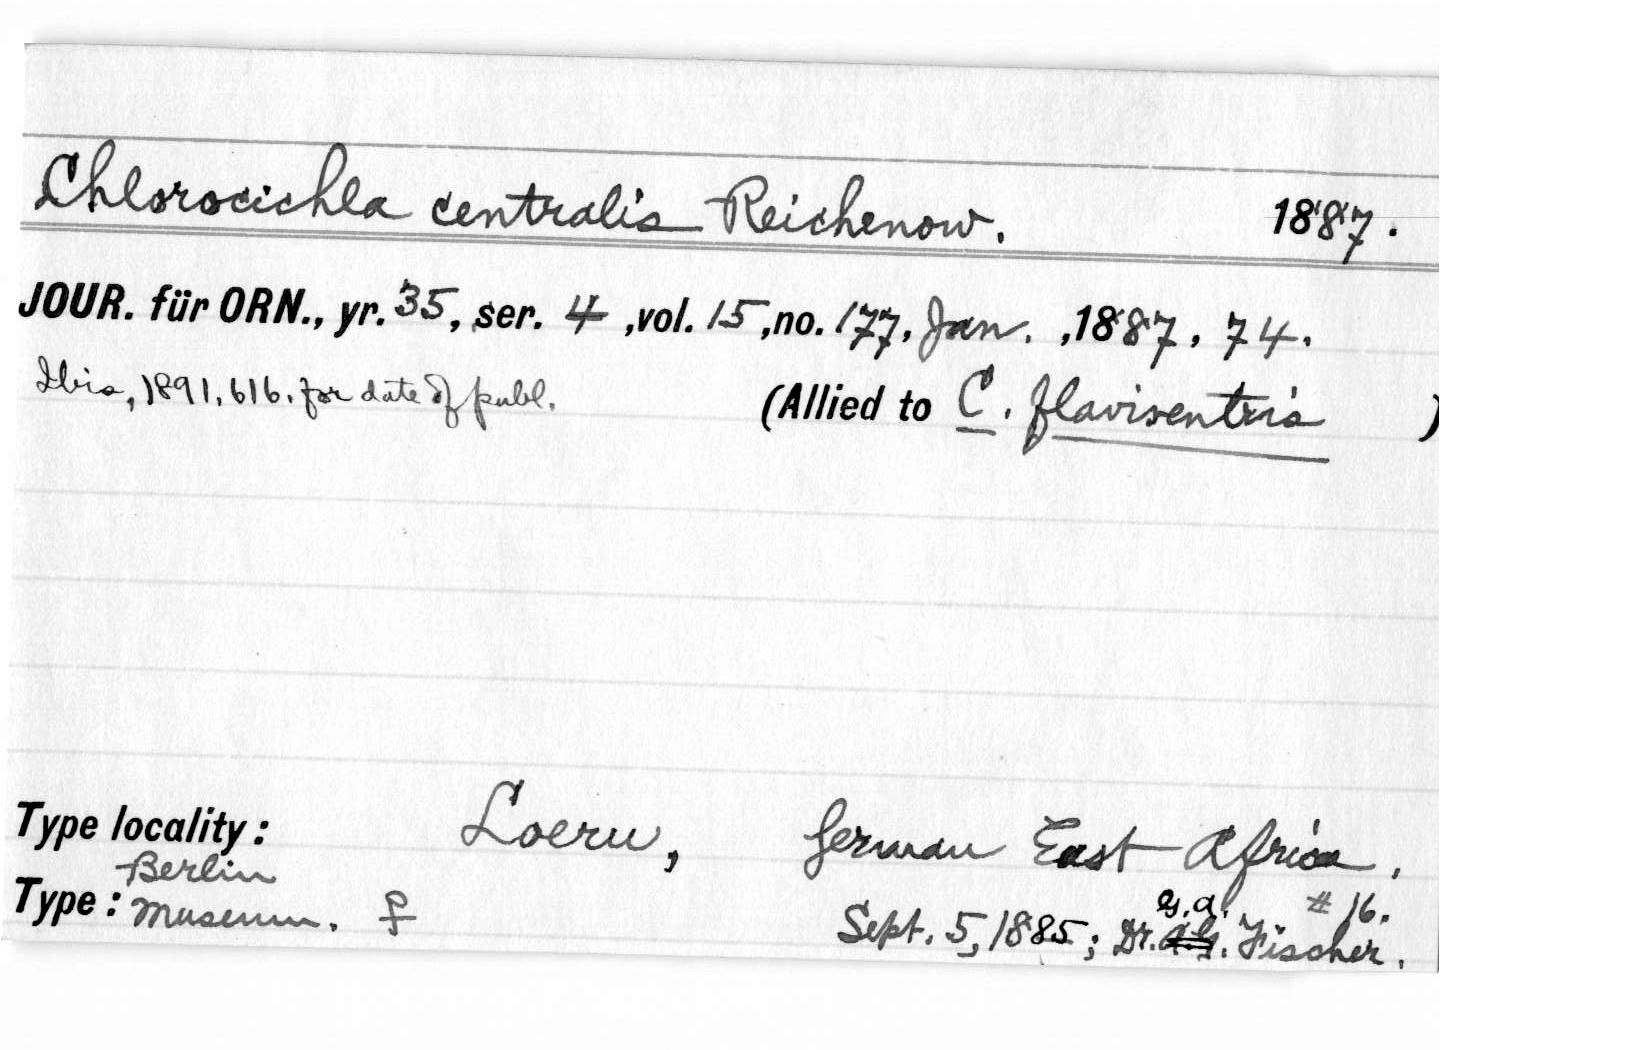 Chlorocichla centralis Reichenow. 1887.
JOUR. für ORN., yr. 35, ser. 4, vol. 15, no. 177, Jan., 1887, 74.
Ibis, 1891, 616, for date of publ. (Allied to C. flaviventris )
Type locality: Loeru, German East Africa.
Type: Berlin Museum. ♀ # 16.
Sept. 5, 1885; Dr. G.A. Fischer.